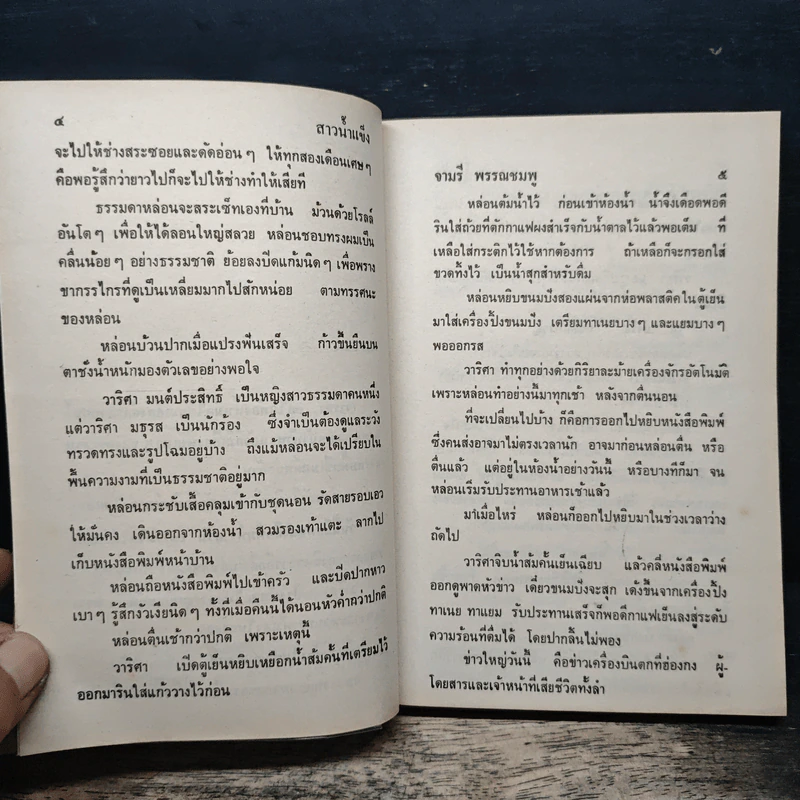 ๔
สาวน้ำแข็ง
จะไปให้ช่างสระซอยและดัดอ่อนๆ ให้ทุกสองเดือนเศษๆ
คือพอรู้สึกว่ายาวไปก็จะไปให้ช่างทำให้เสียที
ธรรมดาหล่อนจะสระเซ็ทเองที่บ้าน ม้วนด้วยโรลล์
อันโตๆ เพื่อให้ได้ลอนใหญ่สลวย หล่อนชอบทรงผมเป็น
คลื่นน้อยๆ อย่างธรรมชาติ ย้อยลงปิดแก้มนิดๆ เพื่อพราง
ขากรรไกรที่ดูเป็นเหลี่ยมมากไปสักหน่อย ตามทรรศนะ
ของหล่อน
หล่อนบ้วนปากเมื่อแปรงฟันเสร็จ ก้าวขึ้นยืนบน
ตาชั่งน้ำหนักมองตัวเลขอย่างพอใจ
วาริศา มนต์ประสิทธิ์ เป็นหญิงสาวธรรมดาคนหนึ่ง
แต่วาริศา มธุรส เป็นนักร้อง ซึ่งจำเป็นต้องดูแลระวัง
ทรวดทรงและรูปโฉมอยู่บ้าง ถึงแม้หล่อนจะได้เปรียบใน
พื้นความงามที่เป็นธรรมชาติอยู่มาก
หล่อนกระชับเสื้อคลุมเข้ากับชุดนอน รัดสายรอบเอว
ให้มั่นคง เดินออกจากห้องน้ำ สวมรองเท้าแตะ ลากไป
เก็บหนังสือพิมพ์หน้าบ้าน
หล่อนถือหนังสือพิมพ์ไปเข้าครัว และปิดปากหาว
เบาๆ รู้สึกงัวเงียนิดๆ ทั้งที่เมื่อคืนนี้ได้นอนหัวค่ำกว่าปกติ
หล่อนตื่นเช้ากว่าปกติ เพราะเหตุนี้
วาริศา เปิดตู้เย็นหยิบเหยือกน้ำส้มคั้นที่เตรียมไว้
ออกมารินใส่แก้ววางไว้ก่อน
จามรี พรรณชมพู
๕
หล่อนต้มน้ำไว้ ก่อนเข้าห้องน้ำ น้ำจึงเดือดพอดี
รินใส่ถ้วยที่ตักกาแฟผงสำเร็จกับน้ำตาลไว้แล้วพอเต็ม ที่
เหลือใส่กระติกไว้ใช้หากต้องการ ถ้าเหลือก็จะกรอกใส่
ขวดทิ้งไว้ เป็นน้ำสุกสำหรับดื่ม
หล่อนหยิบขนมปังสองแผ่นจากห่อพลาสติคในตู้เย็น
มาใส่เครื่องปิ้งขนมปัง เตรียมทาเนยบางๆ และแยมบางๆ
พอออกรส
วาริศา ทำทุกอย่างด้วยกิริยาละม้ายเครื่องจักรอัตโนมัติ
เพราะหล่อนทำอย่างนี้มาทุกเช้า หลังจากตื่นนอน
ที่จะเปลี่ยนไปบ้าง ก็คือการออกไปหยิบหนังสือพิมพ์
ซึ่งคนส่งอาจมาไม่ตรงเวลานัก อาจมาก่อนหล่อนตื่น หรือ
ตื่นแล้ว แต่อยู่ในห้องน้ำอย่างวันนี้ หรือบางทีก็มา จน
หล่อนเริ่มรับประทานอาหารเช้าแล้ว
มาเมื่อไหร่ หล่อนก็ออกไปหยิบมาในช่วงเวลาว่าง
ถัดไป
วาริศาจิบน้ำส้มคั้นเย็นเฉียบ แล้วคลี่หนังสือพิมพ์
ออกดูพาดหัวข่าว เดี๋ยวขนมปังจะสุก เด้งขึ้นจากเครื่องปิ้ง
ทาเนย ทาแยม รับประทานเสร็จก็พอดีกาแฟเย็นลงสู่ระดับ
ความร้อนที่ดื่มได้ โดยปากลิ้นไม่พอง
ข่าวใหญ่วันนี้ คือข่าวเครื่องบินตกที่ฮ่องกง ผู้-
โดยสารและเจ้าหน้าที่เสียชีวิตทั้งลำ